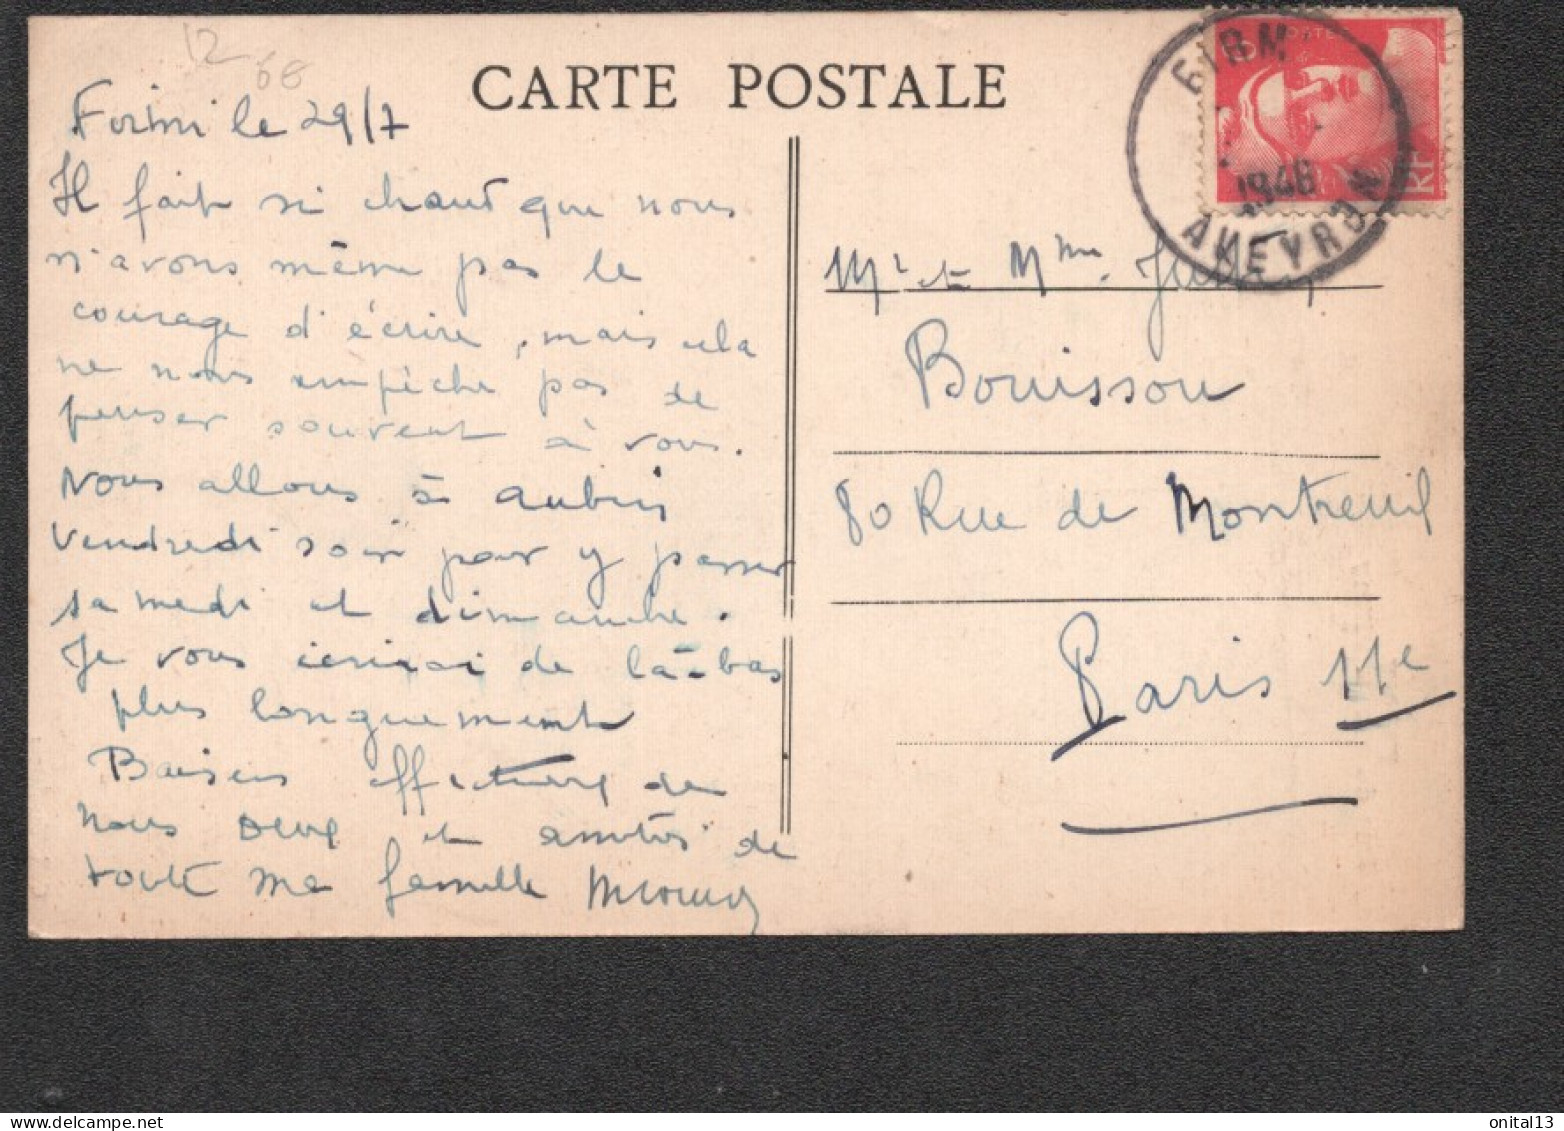 12
68
CARTE POSTALE
Firmi le 29/7
Il fait si chaud que nous
n'avons même pas le
courage d'écrire, mais cela
ne nous empêche pas de
penser souvent à vous.
Nous allons à Aubin
vendredi soir pour y passer
samedi et dimanche.
Je vous écrirai de là-bas
plus longuement
Baisers affectueux de
nous deux et amitiés de
toute ma famille
FIRMI
1948
AVEYRON
RF
Mr et Mme
Bouisson
80 Rue de Montreuil
Paris 11e
onital13